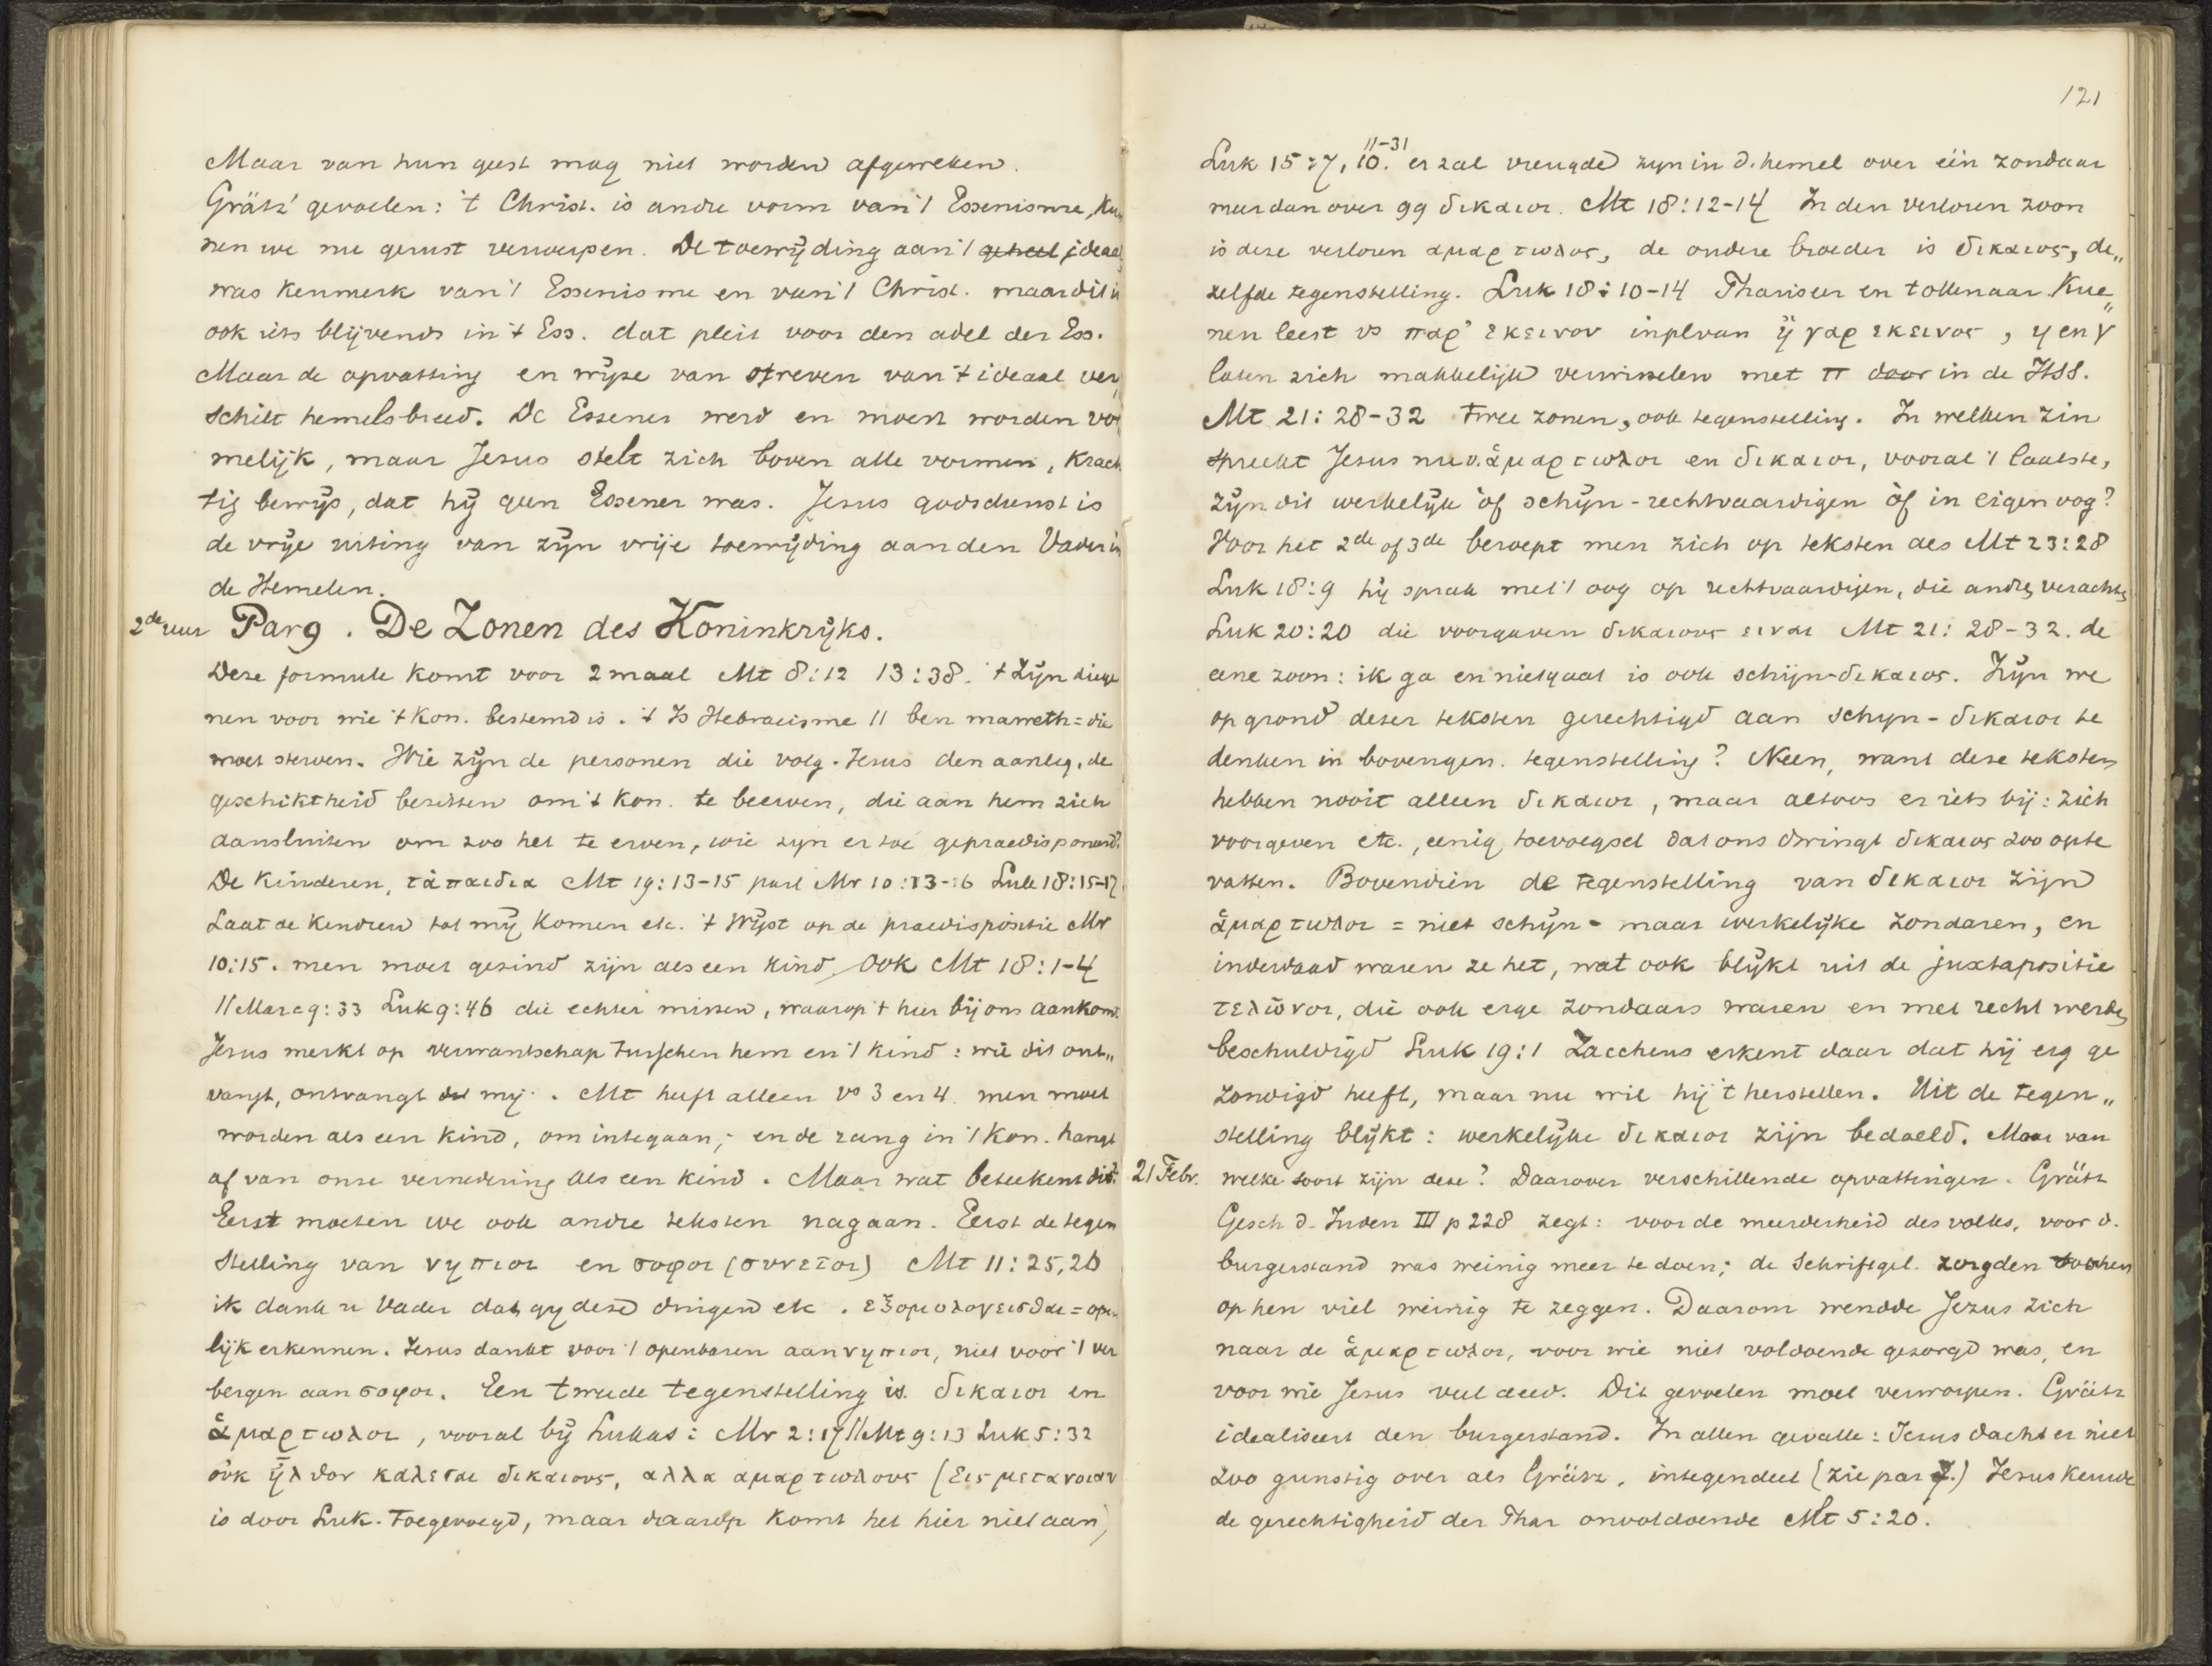 Maar van hun geest mag niet worden afgeweken.
Grätz' gevoelen: 't Christ. is andre vorm van 't Essenisme, kun
nen we nu gerust verwerpen. De toewijding aan 't geheel ideaal
was kenmerk van 't Essenisme en van 't Christ. maar dit is
ook iets blijvends in 't Ess. dat pleit voor den adel der Ess.
Maar de opvatting en wijze van streven van 't ideaal ver„
schilt hemelsbreed. De Essener werd en moest worden vor
melijk, maar Jesus stelt zich boven alle vormen, krach
tig bewijs, dat hij geen Essener was. Jesus godsdienst is
de vrije uiting van zijn vrije toewijding aan den Vader in
de Hemelen.
2de uur Par 9. De Zonen des Koninkrijks.
Deze formule komt voor 2 maal Mt 8:12 13:38. 't Zijn diege
nen voor wie 't Kon. bestemd is. 't Is Hebraeisme // ben maweth = die
moet sterven. Wie zijn de personen die volg. Jesus den aanleg, de
geschiktheid bezitten om 't Kon. te beerven, die aan hem zich
aansluiten om zoo het te erven, wie zijn er toe gepraedisponeerd?
De Kinderen, τὰ παιδια Mt 19:13-15 parl Mr 10:13-16 Luk 18:15-17
Laat de kindren tot mij komen etc. 't Wijst op de praedispositie Mr
10:15. men moet gezind zijn als een kind, ook Mt 18:1-4
// Marc 9:33 Luk 9:46 die echter missen, waarop 't hier bij ons aankomt.
Jesus merkt op verwantschap tusschen hem en 't kind: wie dit ont„
vangt, ontvangt mij. Mt heeft alleen vs 3 en 4. men moet
worden als een kind, om integaan; en de rang in 't Kon. hangt
af van onze vernedering als een kind. Maar wat beteekent dit?
Eerst moeten we ook andre teksten nagaan. Eerst de tegen
stelling van νηπιοι en σοφοι (συνετοι) Mt 11:25,26
ik dank u Vader dat gy deze dingen etc. εξομολογεισθαι = open
lijk erkennen. Jesus dankt voor 't openbaren aan νηπιοι, niet voor 't ver
bergen aan σοφοι. Een tweede tegenstelling is δικαιοι en
ἁμαρτωλοι, vooral bij Lukas: Mr 2:17 // Mt 9:13 Luk 5:32
οὐκ ἦλθον καλεσαι δικαιους, αλλα αμαρτωλους (εις μετανοιαν
is door Luk. toegevoegd, maar daarop komt het hier niet aan)
121
Luk 15:7, 10. 11-31 er zal vreugde zijn in d. hemel over één zondaar
meer dan over 99 δικαιοι. Mt 18:12-14 In den verloren zoon
is deze verloren αμαρτωλος, de andere broeder is δικαιος, de„
zelfde tegenstelling. Luk 18:10-14 Phariseer en tollenaar. Kue„
nen leest vs παρ' εκεινον in pl van ἢ γαρ εκεινος, η en γ
laten zich makkelijk verwisselen met π door in de HSS.
Mt 21:28-32 twee zonen, ook tegenstelling. In welken zin
spreekt Jesus nu v. ἁμαρτωλοι en δικαιοι, vooral 't laatste,
zijn dit werkelijk òf schijn-rechtvaardigen òf in eigen oog?
Voor het 2de of 3de beroept men zich op teksten als Mt 23:28
Luk 18:9 hij sprak met 't oog op rechtvaardigen, die andren verachten
Luk 20:20 die voorgaven δικαιους ειναι Mt 21:28-32. de
eene zoon: ik ga en niet gaat is ook schijn-δικαιος. Zijn we
op grond dezer teksten gerechtigd aan schijn-δικαιοι te
denken in bovengen. tegenstelling? Neen, want deze teksten
hebben nooit alleen δικαιοι, maar altoos er iets bij: zich
voorgeven etc., eenig toevoegsel dat ons dwingt δικαιος zoo opte
vatten. Bovendien de tegenstelling van δικαιοι zijn
ἁμαρτωλοι = niet schijn- maar werkelijke zondaren, en
inderdaad waren ze het, wat ook blijkt uit de juxtapositie
τελῶναι, die ook erge zondaars waren en met recht werden
beschuldigd Luk 19:1 Zaccheus erkent daar dat hij erg ge
zondigd heeft, maar nu wil hij 't herstellen. Uit de tegen„
stelling blijkt: werkelijke δικαιοι zijn bedoeld. Maar van
21 Febr. welke soort zijn deze? Daarover verschillende opvattingen. Grätz
Gesch d. Juden III p 228 zegt: voor de meerderheid des volks, voor d.
burgerstand was weinig meer te doen; de Schriftgel. zorgden
op hen viel weinig te zeggen. Daarom wendde Jezus zich
naar de ἁμαρτωλοι, voor wie niet voldoende gezorgd was, en
voor wie Jesus veel deed. Dit gevoelen moet verworpen. Grätz
idealiseert den burgerstand. In allen gevalle: Jesus dacht er niet
zoo gunstig over als Grätz, integendeel (zie par 7.) Jesus keurde
de gerechtigheid der Phar onvoldoende Mt 5:20.